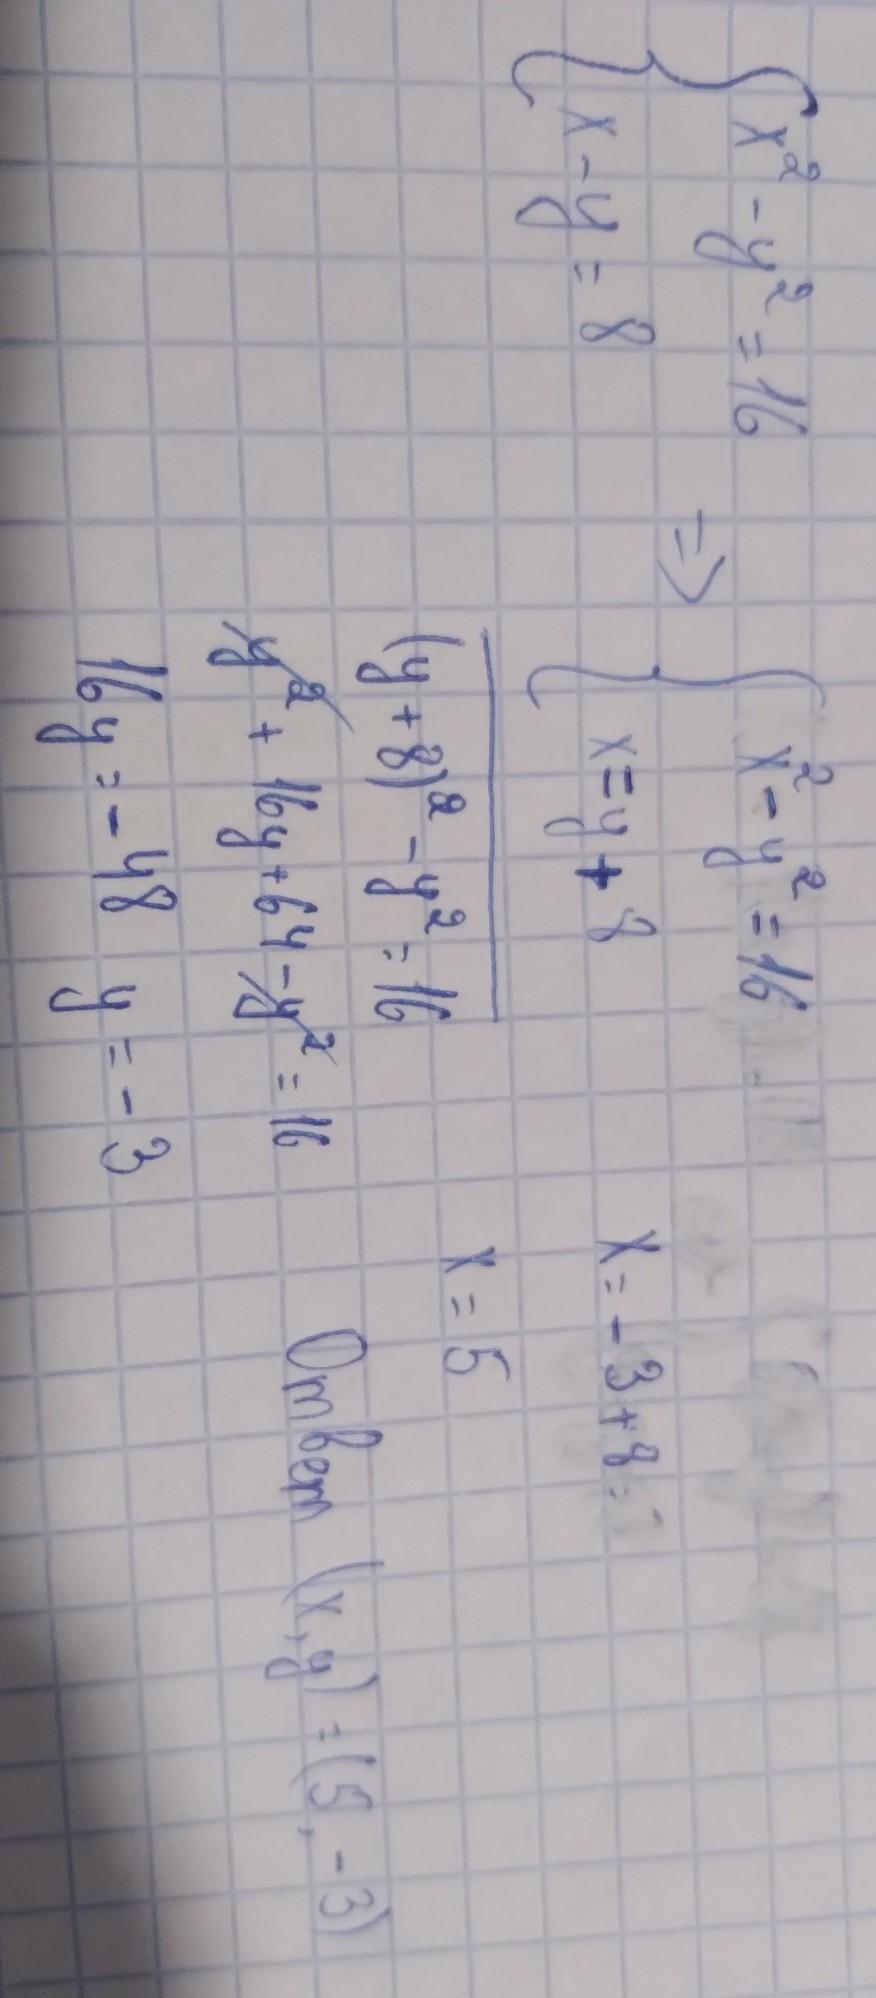 { x² - y² = 16
x - y = 8
=> { x² - y² = 16
x = y + 8
(y + 8)² - y² = 16
y² + 16y + 64 - y² = 16
16y = - 48 y = - 3
x = - 3 + 8 =
x = 5
Ответ (x, y) = (5, -3)